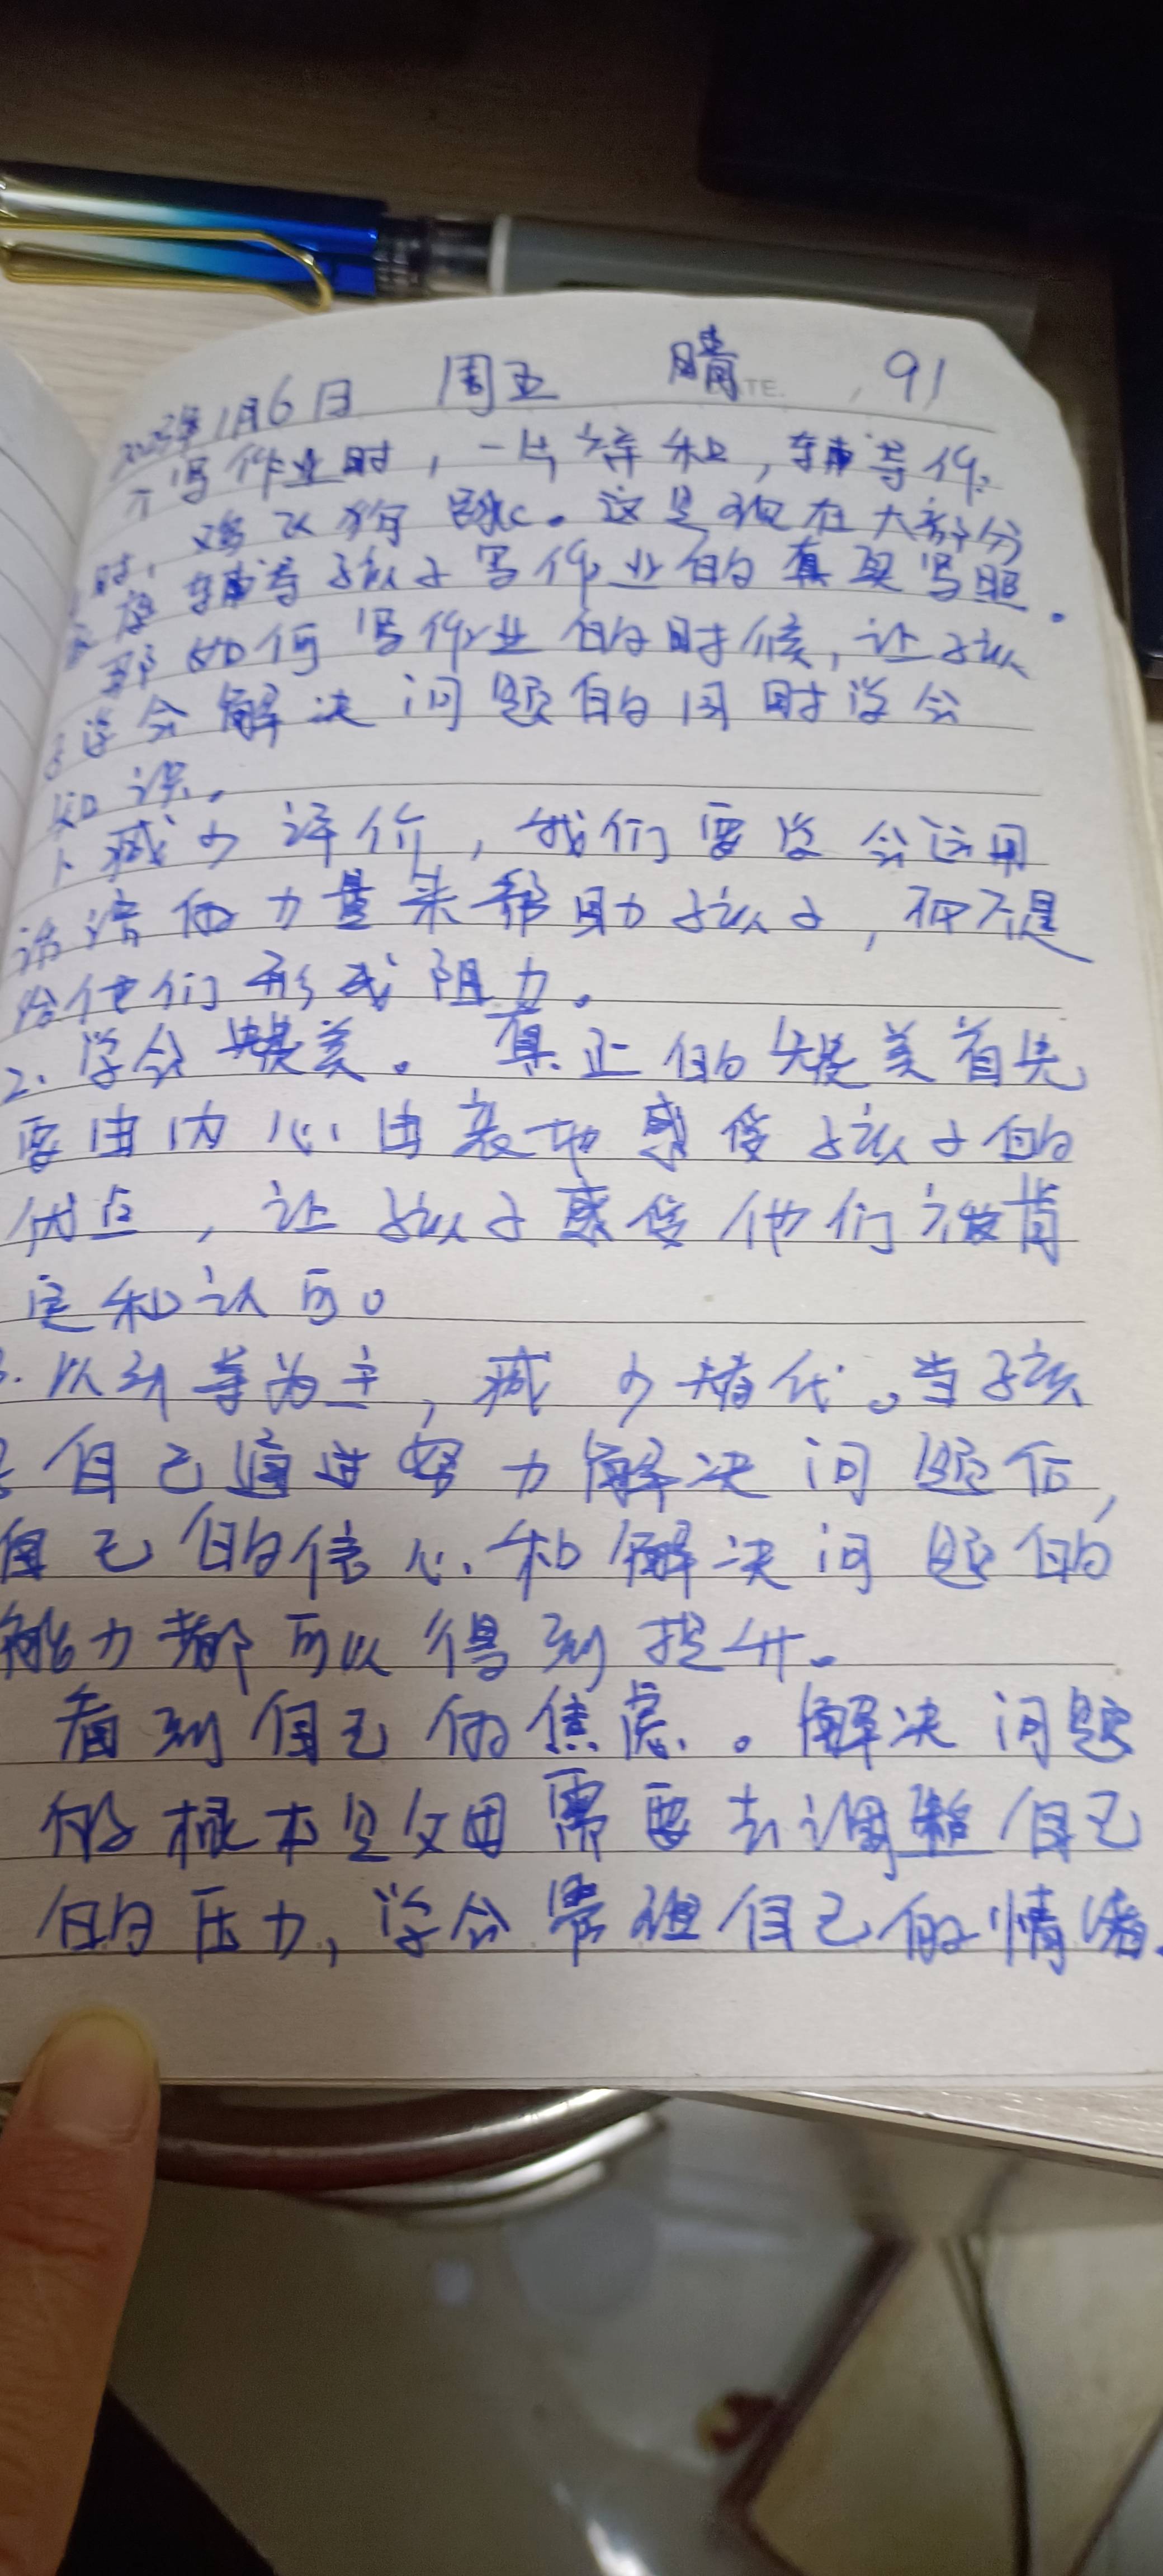 2023年1月6日 周五 晴 91
不写作业时,一片祥和,辅导作
时,鸡飞狗跳。这是现在大部分
家庭辅导孩子写作业的真实写照.
那如何写作业的时候,让孩
子学会解决问题的同时学会
知识.
1、减少评价,我们要学会运用
话语的力量来帮助孩子,而不是
给他们形成阻力。
2、学会赞美。真正的赞美首先
要由内心由衷地感受孩子的
优点,让孩子感受他们被肯
定和认可。
3.以引导为主,减少替代。当孩
子自己通过努力解决问题后,
自己的信心和解决问题的
能力都可以得到提升。
看到自己的焦虑。解决问题
的根本是父母需要去调整自己
的压力,学会管理自己的情绪.
TE